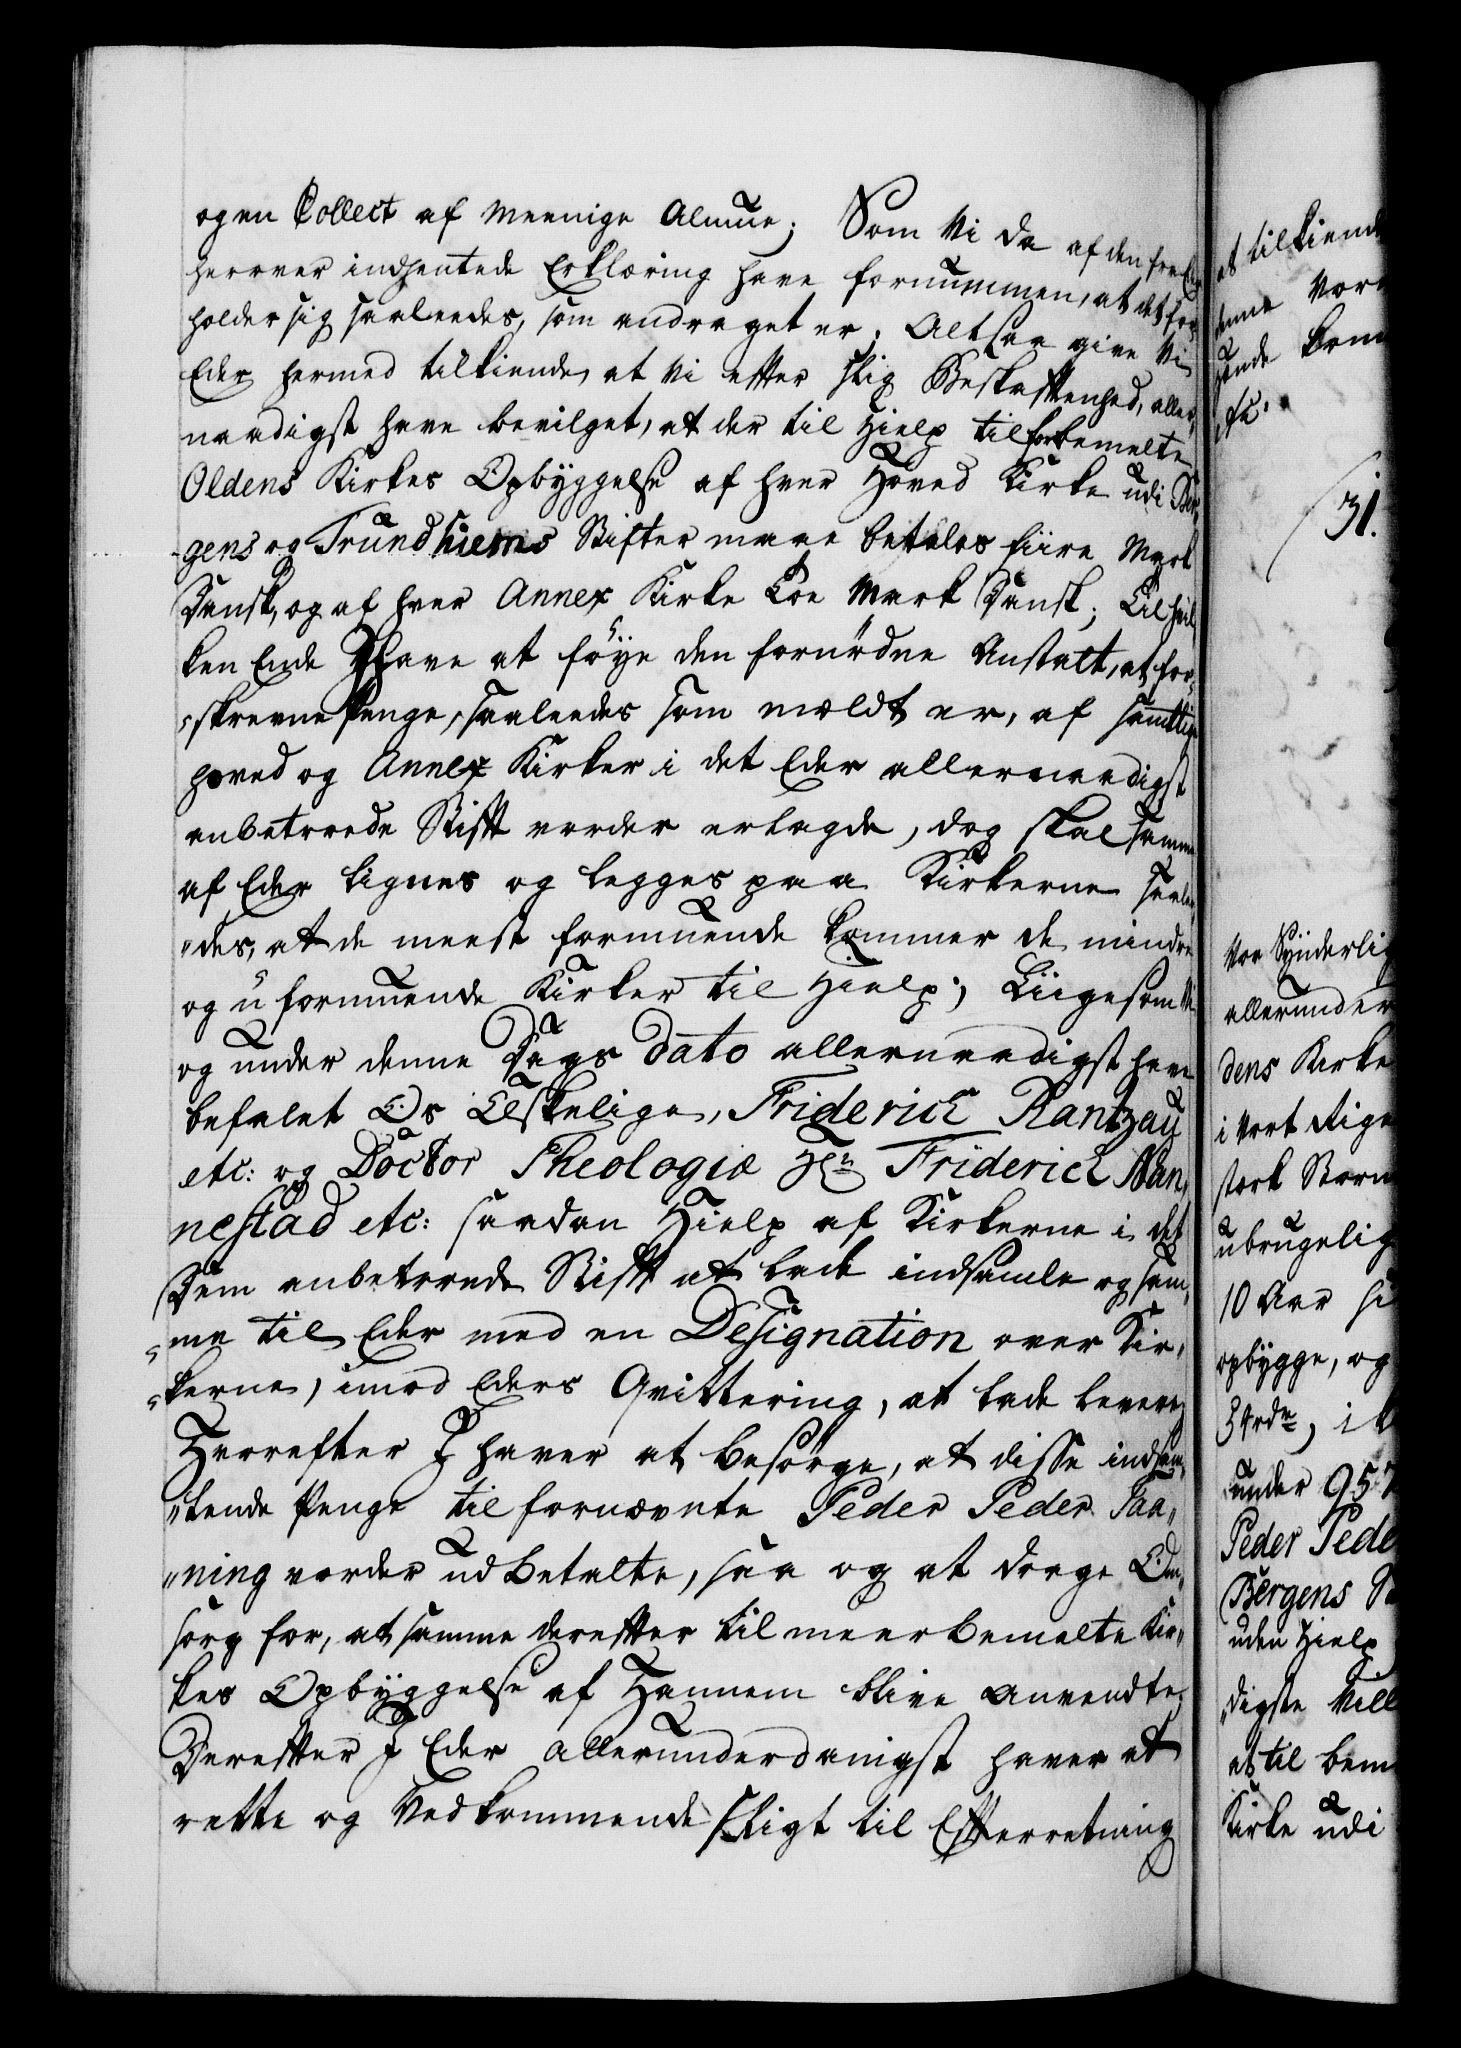 og en Collect af meenige Almue; Som Vi da af den fra Eder
herover indhentede Erklæring have fornummen, at det for¬
holder sig saaleedes, som andraget er; Altsaa give Vi
Eder hermed tilkiende, at Vi efter slig Beskaffenhed, aller¬
naadigst have bevilget, at der til Hielp til forbemelte
Oldens Kirkes Opbyggelse af hver Hoved Kirke udi Ber¬
gens og Trundhiems Stifter maae betales fiire Mark
Dansk, og af hver Annex Kirke Toe Mark Dansk; Til hvil¬
ken Ende I have at föye den fornødne Anstalt, at for¬
skrevne Penge, saaleedes som meldt er, af samtlige
hoved og Annex Kirker i det Eder allernaadigst
anbetroede Stift vorder erlagde, dog skal samme
af Eder lignes og legges paa Kirkerne saalee¬
des, at de meest formuende kommer de mindre
og uformuende Kirker til Hielp; Liigesom Vi
og under denne Dags Dato allernaadigst have
befalet Os Elskelige, Friderich Rantzau
etc: og Doctor Theologiæ Hr. Friderich Nan¬
nestad etc: saadan Hielp af Kirkerne i det
Dem anbetroede Stift at lade indsamle og sam¬
me til Eder med en Designation over Kir¬
kerne, imod Eders Qvittering, at lade levere;
Hvorefter I haver at besørge, at disse indsam¬
lende Penge til fornævnte Peder Peders. Faa¬
ning vorder udbetalte, saa og at drage Om¬
sorg for, at samme derefter til meerbemelte Kir¬
kes Opbyggelse af Hannem blive anvendte;
Derefter I Eder allerunderdanigst haver at
rette og Vedkommende sligt til Efterretning
at tilkiende
denne Vore
hende kom
etc.
31.
Vor Synderlig
allerunder
dens Kirke
i Vort Rige
stærk Storm
ubrugelig
10 Aar si
opbygge, og
34rdr, i
under 957
Peder Pede
Bergens St
uden Hielp
digste Vill
at til bem
Kirke udi